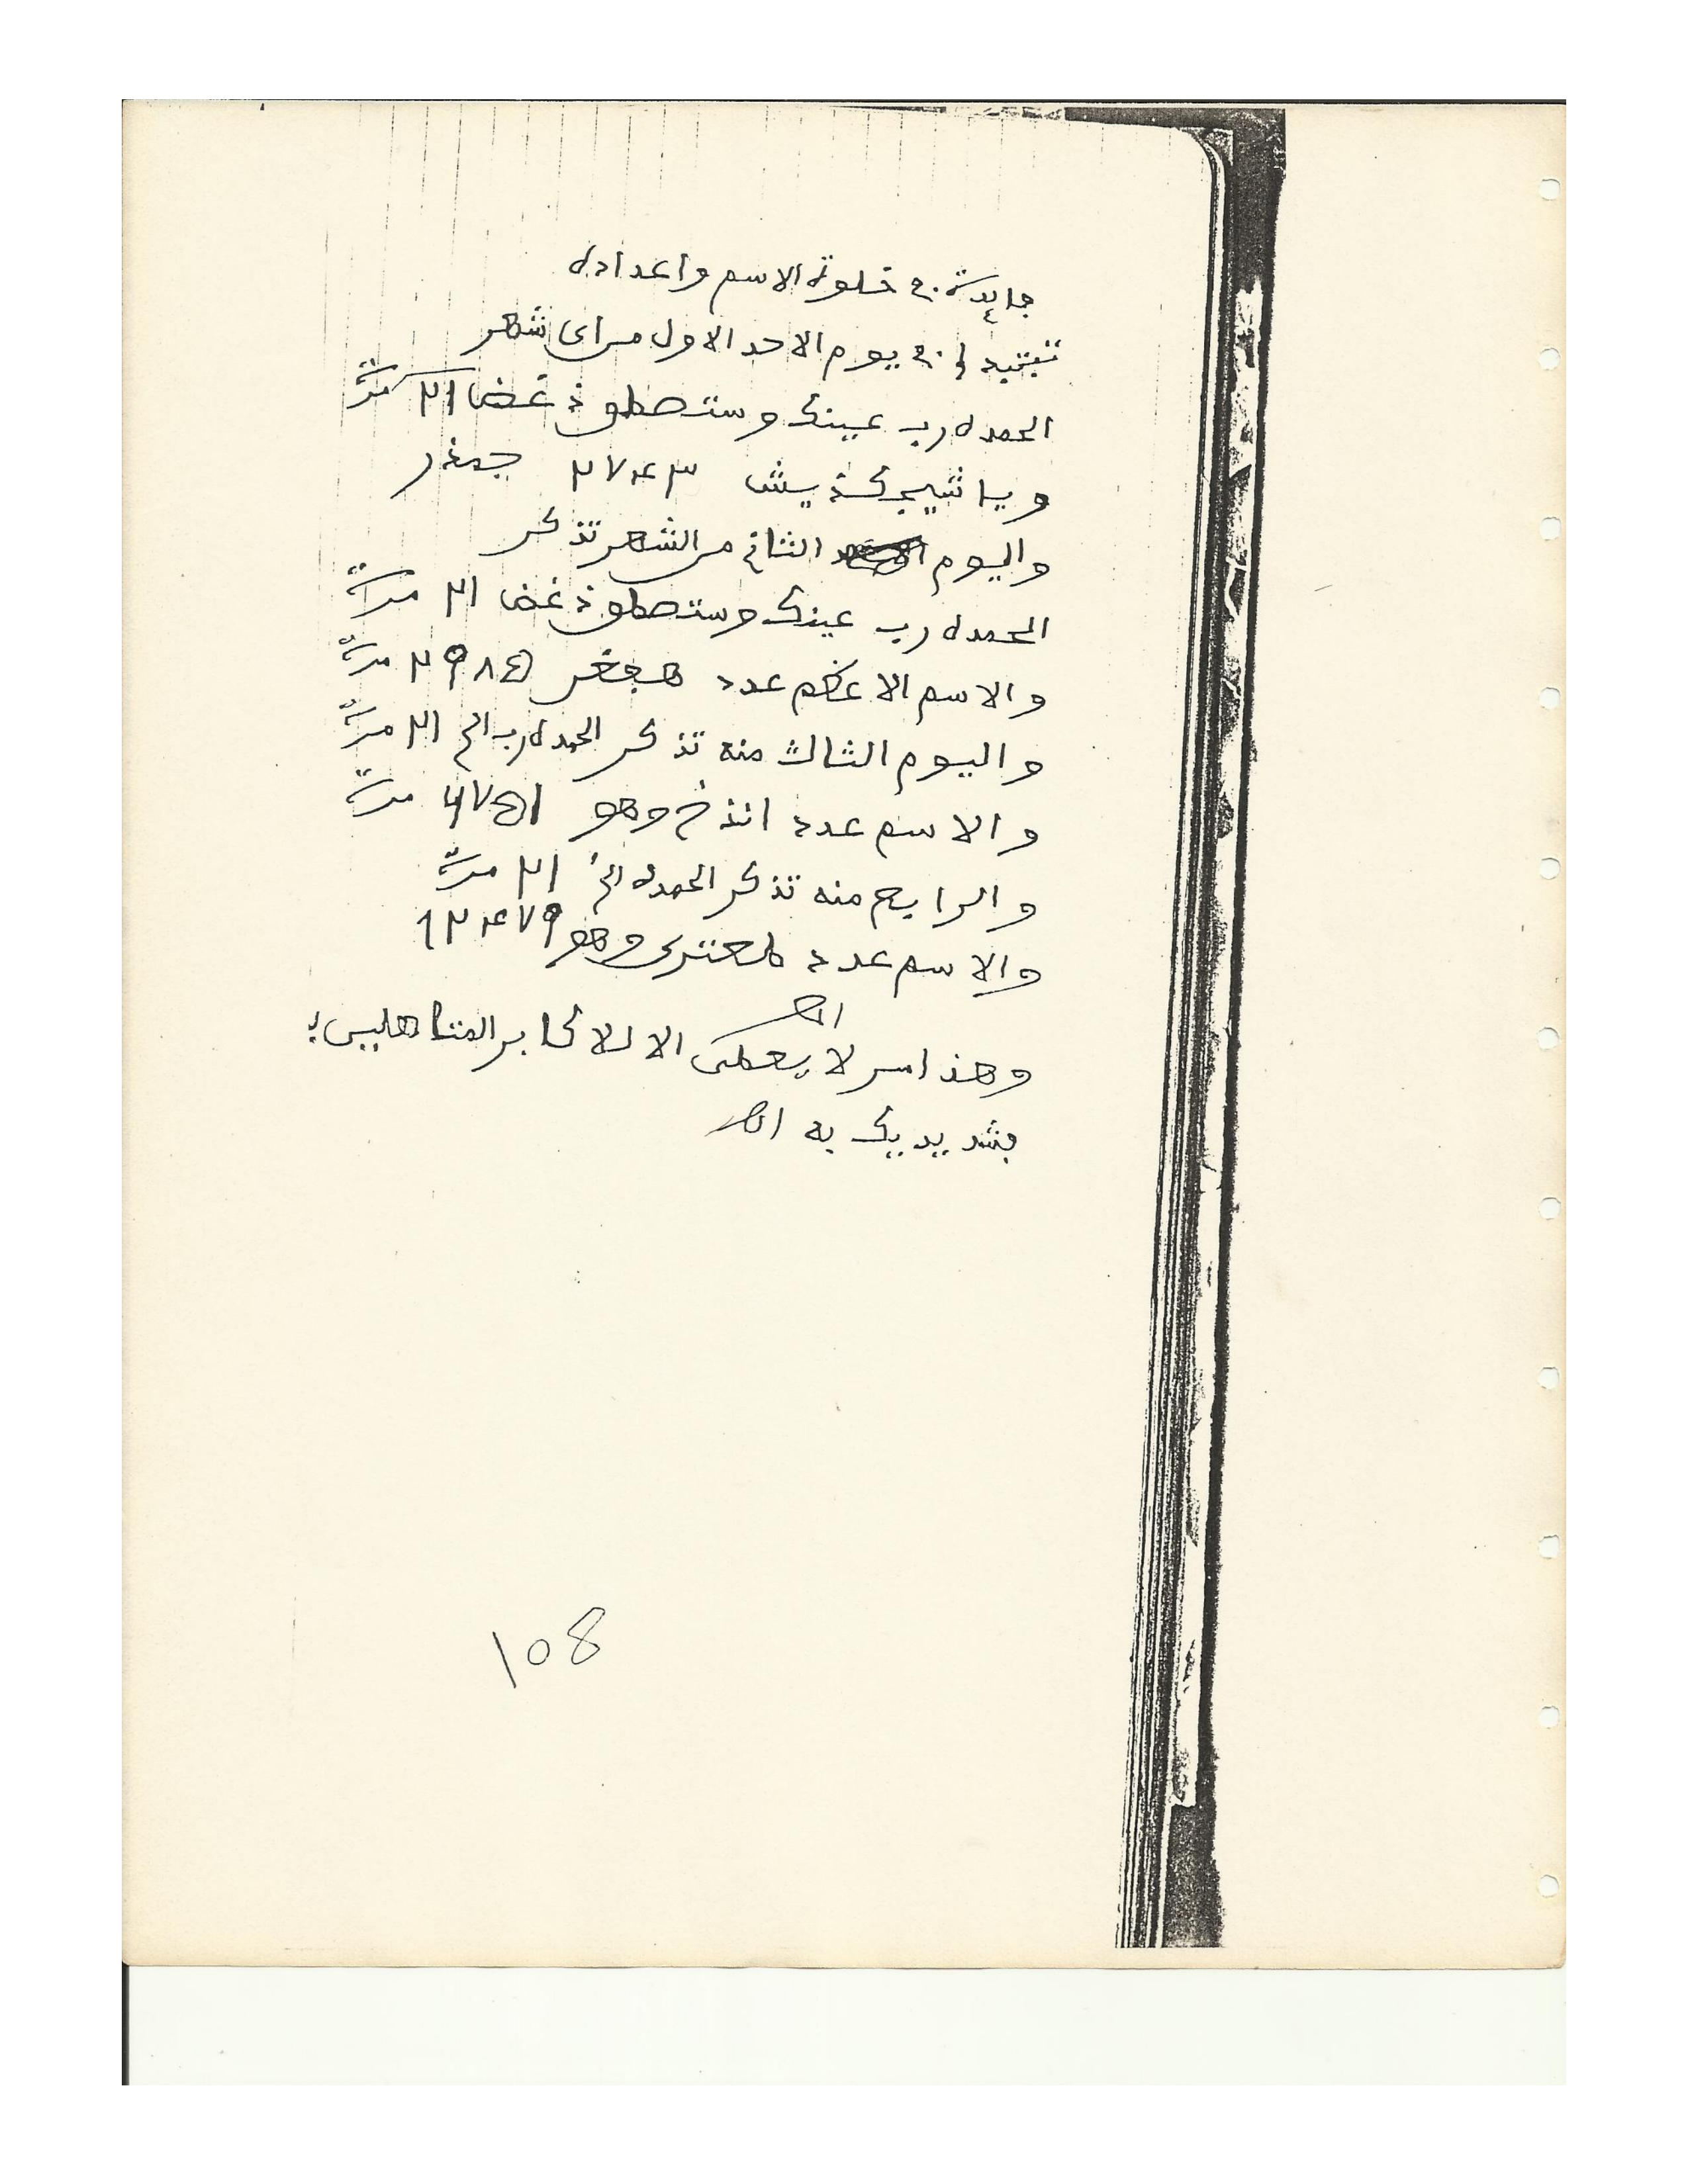 فايدة في خلوة الاسم واعداده
تبتيد في يوم الاحد الاول من اى شهر
الحمد له رب عينك وستصطو ذغض ٢١ مرة
ويا شيجكذيش ٢٧٤٣ جمذر
واليوم الثاني من الشهر تذكر
الحمد له رب عينك وستصطو ذغض ٢١ مرة
والاسم الاعظم عدد هجغر ٢٩٨٥ مرة
واليوم الثالث منه تذكر الحمد له رب الخ ٢١ مرة
والاسم عدد انذخ وهو ٦٧٥١ مرة
والرابع منه تذكر الحمد له الخ ٢١ مرة
والاسم عدد وهو ١٢٤٧٩
وهذا سر لا يعطى الا للاكابر المتاهلين
اهـ
فشد يديك به اهـ
108